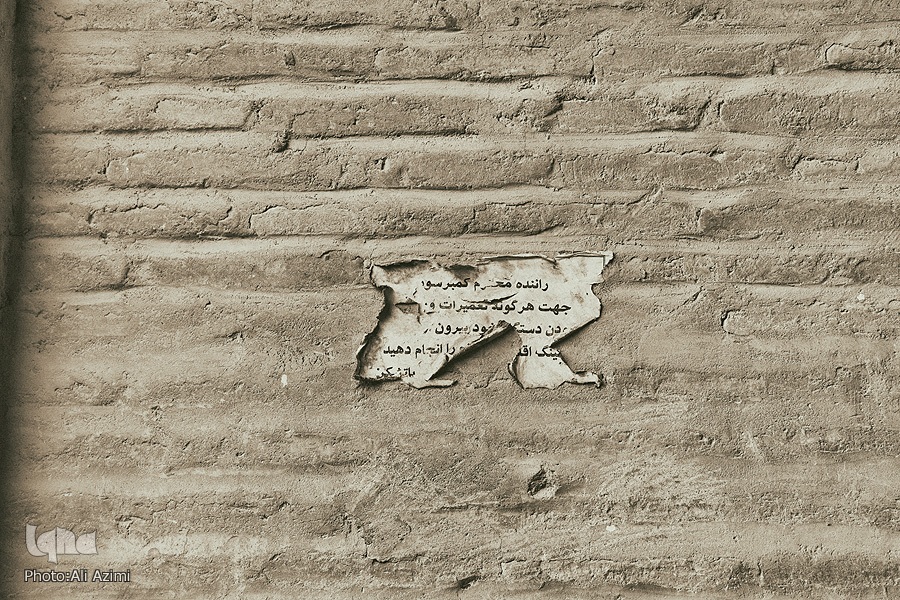 راننده محترم کمپرسور
جهت هرگونه تعمیرات و
دن دستگاه خود بیرون
بینک را انجام دهید
باتشکر
Iqna
Photo:Ali Azimi